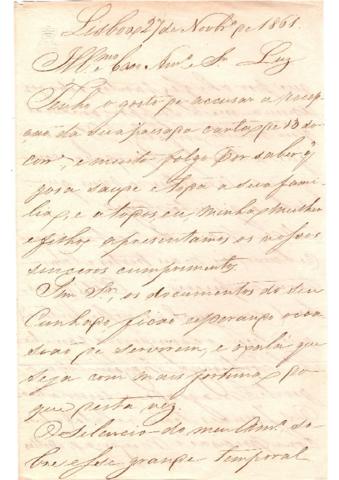 Lisboa 27 de Novbro de 1861.
Illmo e Caro Amo e Sr Luz
Tenho o gosto de accusar a recep
ção da sua presada carta de 13 do
corre, e muito folgo por saber q
gosa saude e toda a sua fami
lia, e a todos eu, minha mulher
e filhos apresentamos os nossos
sinceros cumprimentos
Sim Sr, os documentos do seu
Cunhado, ficão esperando occa
sião de servirem, e oxalá que
seja com mais fortuna do
que desta vez.
O silencio do meu Amo so
bre esse grande temporal